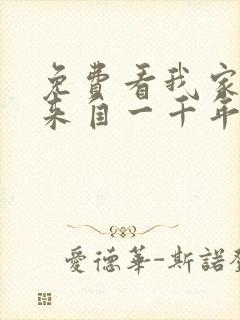 免費看我家
來自一千年
愛德華-斯諾登